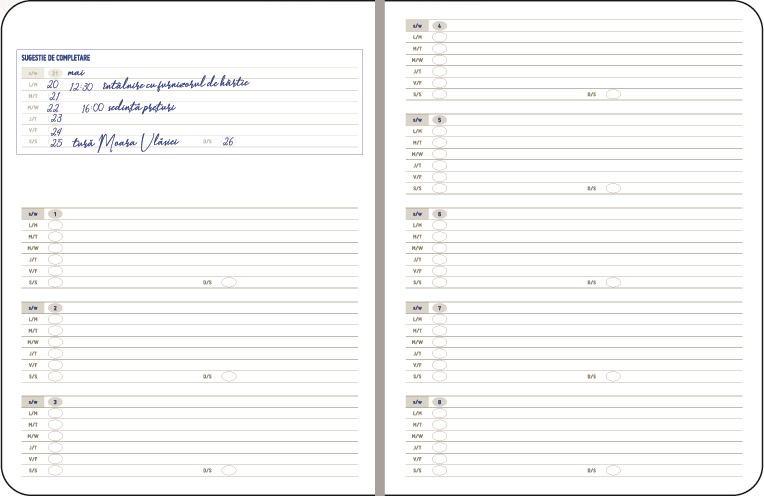 SUGESTIE DE COMPLETARE
s/w 21 mai
L/M 20 12:30 întâlnire cu furnizorul de hârtie
M/T 21
M/W 22 16:00 ședință prețuri
J/T 23
V/F 24
S/S 25 tură Moara Vlăsiei D/S 26
s/w 1
L/M
M/T
M/W
J/T
V/F
S/S D/S
s/w 2
L/M
M/T
M/W
J/T
V/F
S/S D/S
s/w 3
L/M
M/T
M/W
J/T
V/F
S/S D/S
s/w 4
L/M
M/T
M/W
J/T
V/F
S/S D/S
s/w 5
L/M
M/T
M/W
J/T
V/F
S/S D/S
s/w 6
L/M
M/T
M/W
J/T
V/F
S/S D/S
s/w 7
L/M
M/T
M/W
J/T
V/F
S/S D/S
s/w 8
L/M
M/T
M/W
J/T
V/F
S/S D/S